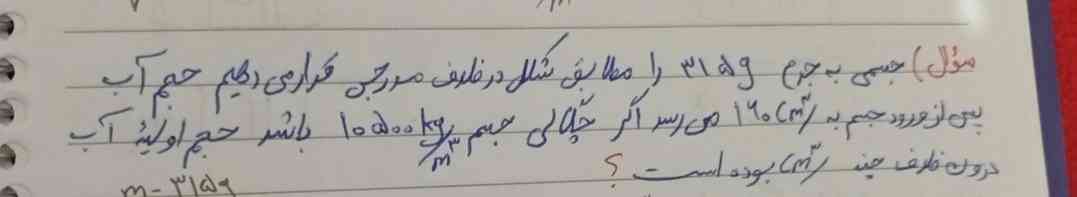 سؤال) جسمی به جرم ۳۱۵g را مطابق شکل در ظرف مدرجی قرار می دهیم حجم آب
پس از ورود جسم به ۱۶۰ cm³ می رسد اگر چگالی جسم ۱۰۵۰۰ kg/m³ باشد حجم اولیهٔ آب
درون ظرف چند cm³ بوده است ؟
m = ۳۱۵g